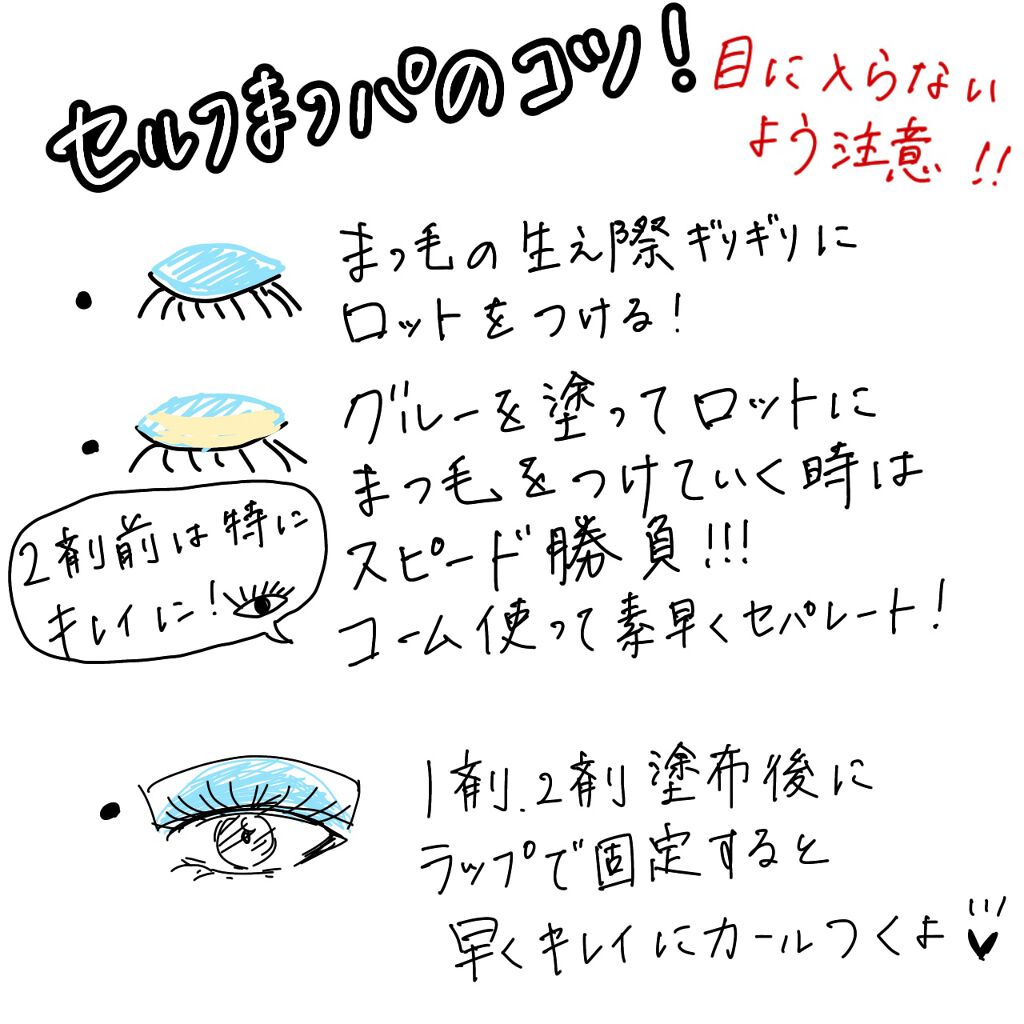 セルフまつパのコツ!
目に入らない
よう注意!!
まつ毛の生え際ギリギリに
ロットをつける!
グルーを塗ってロットに
まつ毛をつけていく時は
スピード勝負!!!
コーム使って素早くセパレート!
2剤前は特に
キレイに!
1剤.2剤塗布後に
ラップで固定すると
早くキレイにカールつくよ